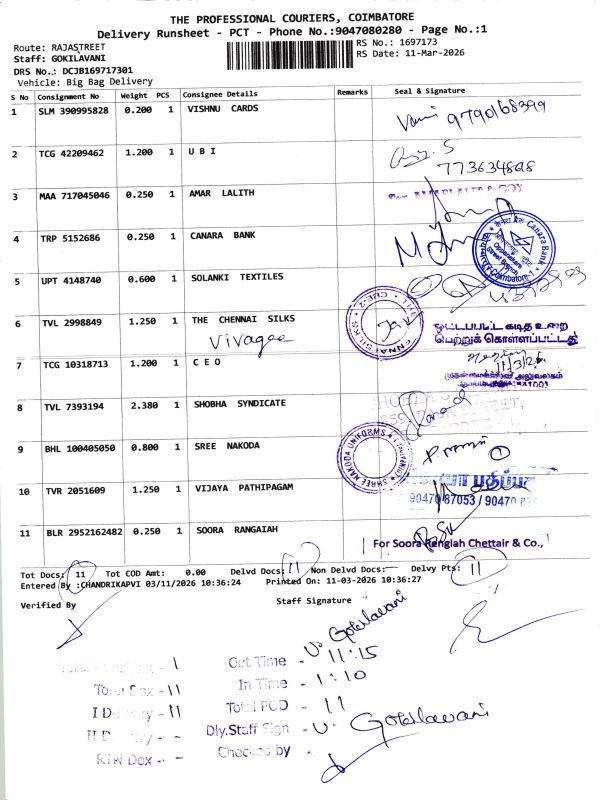 THE PROFESSIONAL COURIERS, COIMBATORE
Delivery Runsheet - PCT - Phone No.:9047080280 - Page No.:1
Route: RAJASTREET
RS No.: 1697173
Staff: GOKILAVANI
RS Date: 11-Mar-2026
DRS No.: DCJB169717301
Vehicle: Big Bag Delivery
S No Consignment No Weight PCS Consignee Details Remarks Seal & Signature
1 SLM 390995828 0.200 1 VISHNU CARDS 9790168399
2 TCG 42209462 1.200 1 U B I
773634898
3 MAA 717045046 0.250 1 AMAR LALITH
4 TRP 5152686 0.250 1 CANARA BANK
Canara Bank
Coimbatore-1
5 UPT 4148740 0.600 1 SOLANKI TEXTILES
6 TVL 2998849 1.250 1 THE CHENNAI SILKS
Vivagaa
ஒட்டப்பட்ட கடித உறை
பெற்றுக் கொள்ளப்பட்டது
7 TCG 10318713 1.200 1 C E O
11/3/26
8 TVL 7393194 2.380 1 SHOBHA SYNDICATE
9 BHL 100405050 0.800 1 SREE NAKODA
SHREE NAKODA UNIFORMS
1
10 TVR 2051609 1.250 1 VIJAYA PATHIPAGAM
90470 87053 / 90470
11 BLR 2952162482 0.250 1 SOORA RANGAIAH
For Soora Rengiah Chettair & Co.,
Tot Docs: 11 Tot COD Amt: 0.00 Delvd Docs: 11 Non Delvd Docs:— Delvy Pts: 11
Entered By :CHANDRIKAPVI 03/11/2026 10:36:24 Printed On: 11-03-2026 10:36:27
Verified By Staff Signature
Gokilavani
- 1 Out Time - 11:15
Total Box - 11 In Time - 1:10
I Delivery - 11 Total POD - 11
II Delivery - - Dly.Staff Sign - V. Gokilavani
RTN Dox - - Checked by -